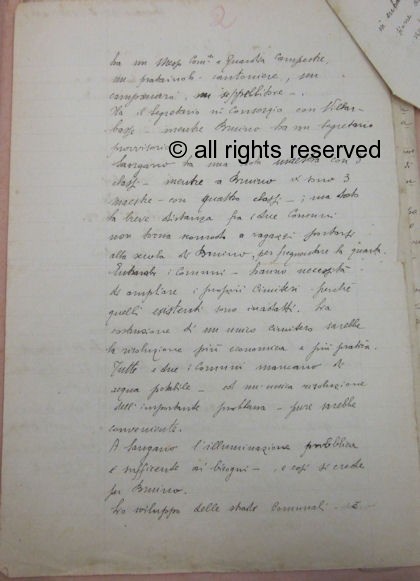 2
ha un Messo Com.le e Guardia Campestre,
un cantoniere, un
campanaro, un seppellitore -.
Ha il Segretario in Consorzio con Villar-
basse - mentre Bruino ha un Segretario
provvisorio
© all rights reserved
Sangano ha una sola maestra con 3
classi - mentre a Bruino vi sono 3
maestre - con quattro classi - ; ma stato
la breve distanza fra i due Comuni
non torna comodo a ragazzi portarsi
alla scuola di Bruino, per frequentare la quarta.
Entrambi i Comuni - hanno necessità
di ampliare i proprii Cimiteri perchè
quelli esistenti sono inadatti. La
costruzione di un unico cimitero sarebbe
la risoluzione più economica e più pratica.
Tutti e due i Comuni mancano di
acqua potabile - ed un'unica risoluzione
dell'importante problema - pure sarebbe
conveniente.
A Sangano l'illuminazione pubblica
è sufficente ai bisogni - , e così si crede
per Bruino.
Lo sviluppo delle strade Comunali